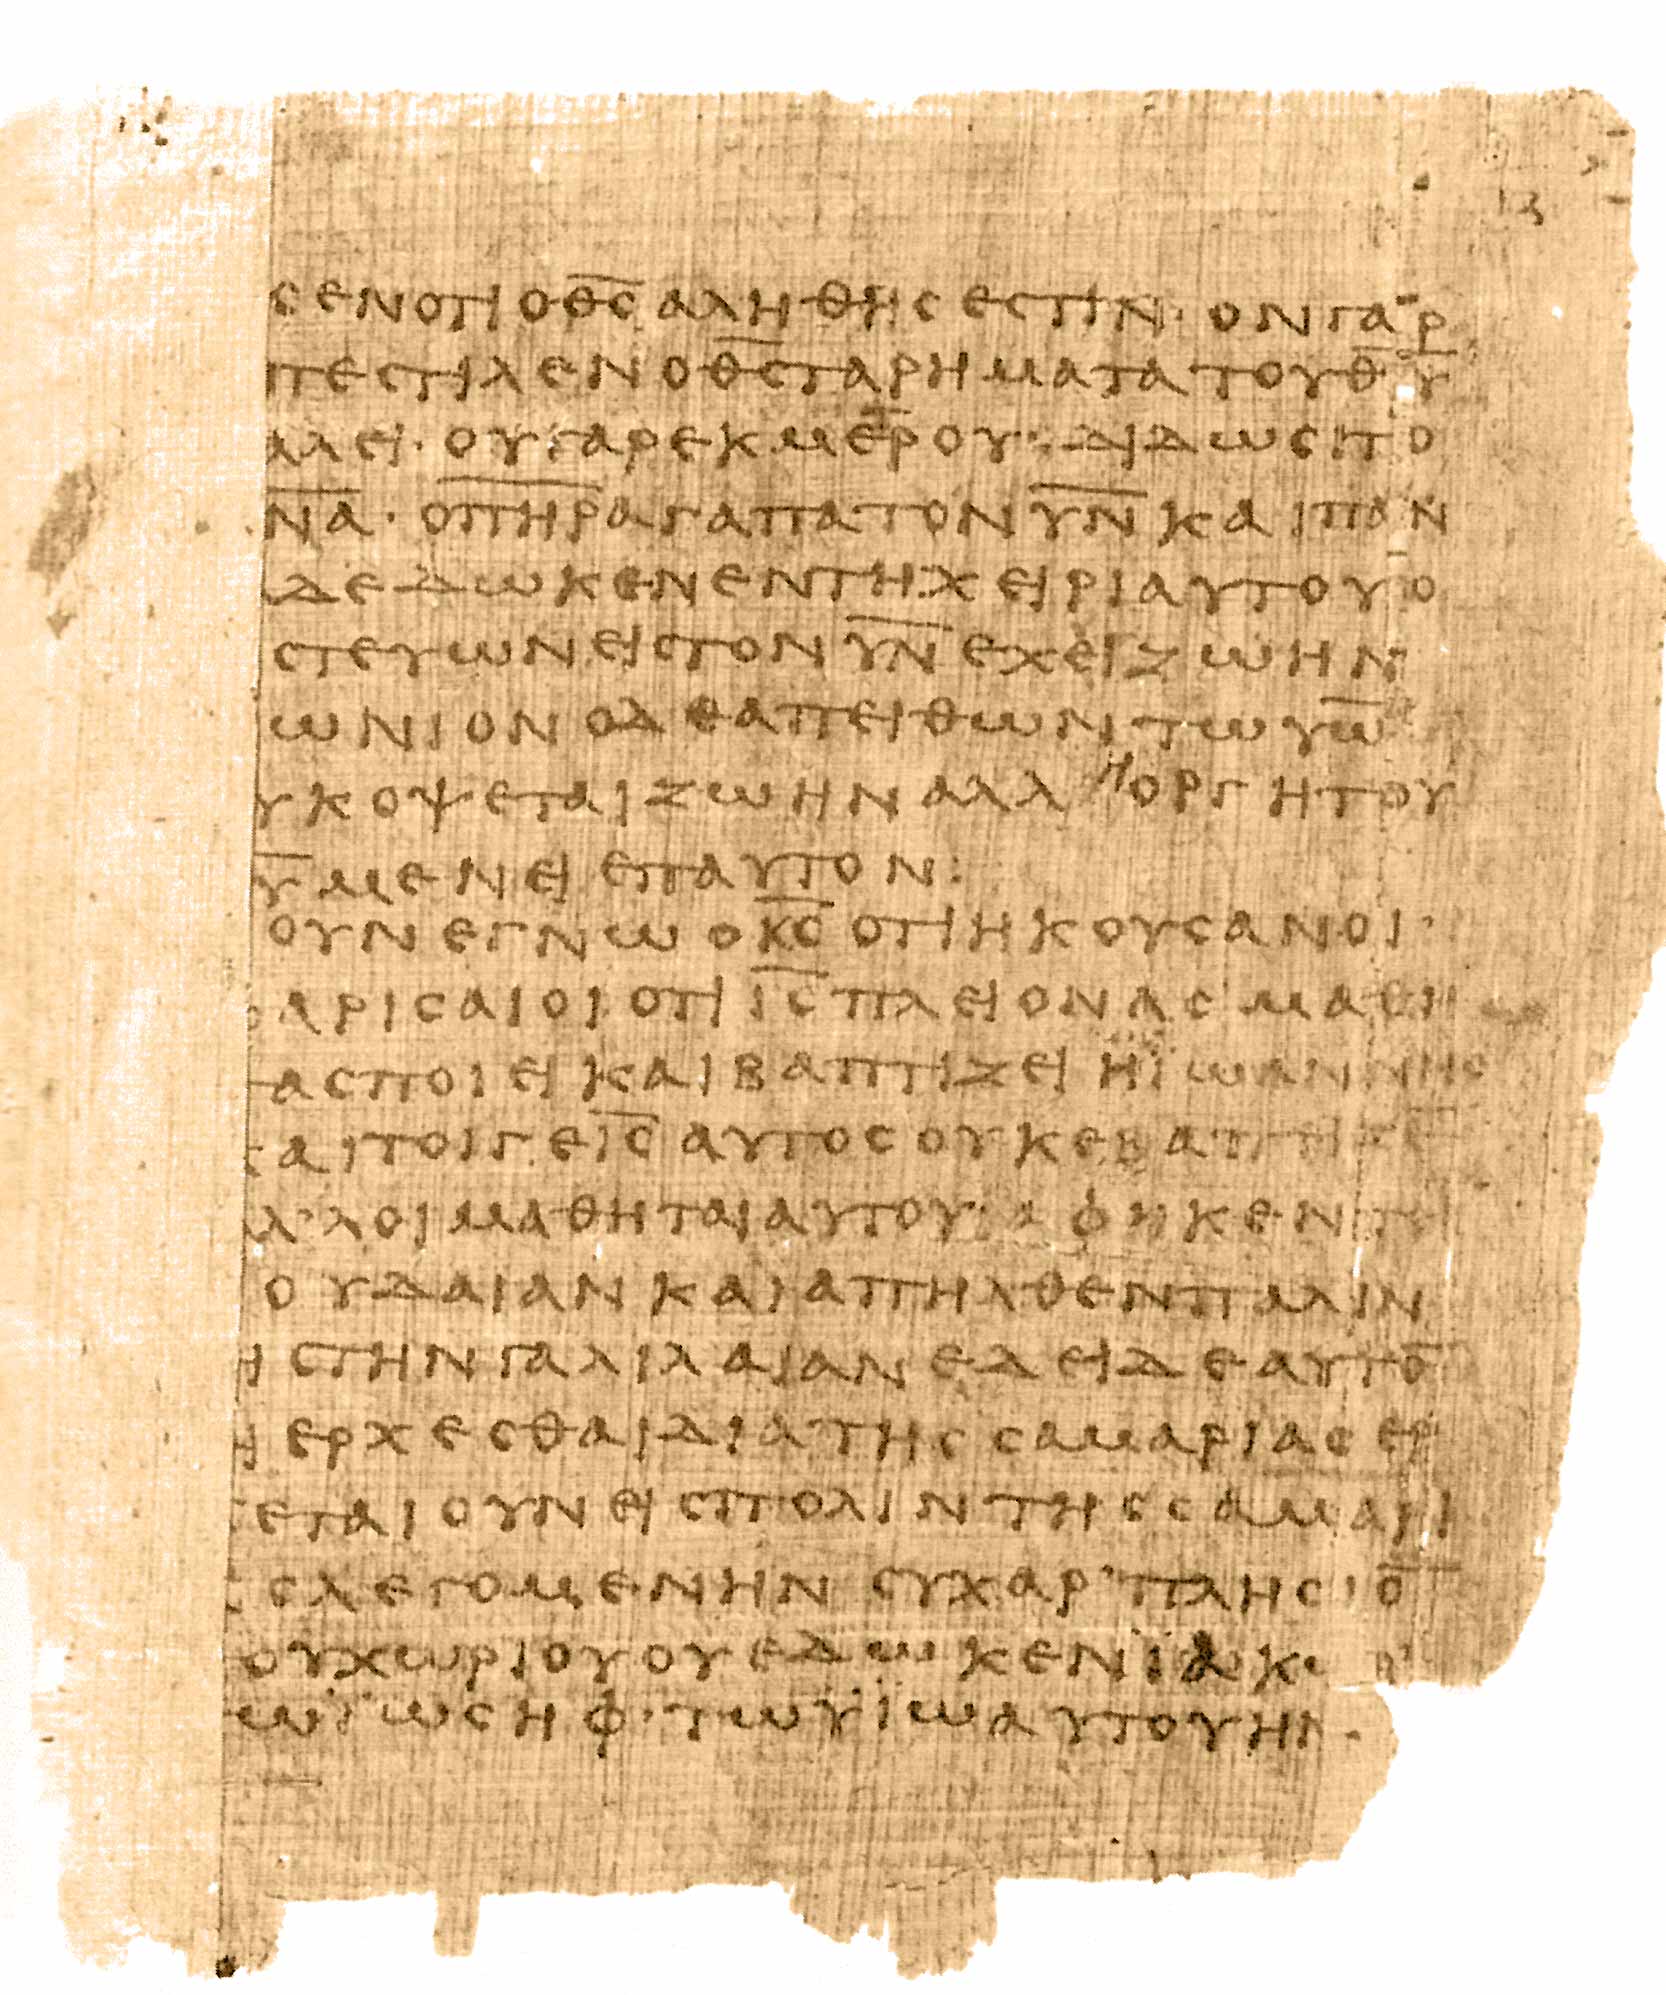 ϲΕΝΟΤΙΟΘ̅Ϲ̅ΑΛΗΘΗϹΕϹΤΙΝ·ΟΝΓΑΡ
ΠΕϹΤΙΛΕΝΟΘ̅Ϲ̅ΤΑΡΗΜΑΤΑΤΟΥΘ̅Υ̅
ΑΛΕΙ·ΟΥΓΑΡΕΚΜΕΤΡΟΥ·ΔΙΔΩϹΙΤΟ
Ν̅Α̅·ΟΠ̅Η̅Ρ̅ΑΓΑΠΑΤΟΝΥ̅Ν̅ΚΑΙΠΑΝ
ΑΔΕΔΩΚΕΝΕΝΤΗΧΕΙΡΙΑΥΤΟΥΟ
ϹΤΕΥΩΝΕΙϹΤΟΝΥ̅Ν̅ΕΧΕΙΖΩΗΝ
ΩΝΙΟΝΟΔΕΑΠΕΙΘΩΝΤΩΥ̅Ω̅
ΥΚΟΨΕΤΑΙΖΩΗΝΑΛΛΗΟΡΓΗΤΟΥ
Υ̅ΜΕΝΕΙΕΠΑΥΤΟΝ:
ΟΥΝΕΓΝΩΟΚ̅Ϲ̅ΟΤΙΗΚΟΥϹΑΝΟΙ·
ΑΡΙϹΑΙΟΙΟΤΙΙ̅Ϲ̅ΠΛΕΙΟΝΑϹΜΑΘΗ
ΤΑϹΠΟΙΕΙΚΑΙΒΑΠΤΙΖΕΙΗΪΩΑΝΝΗϹ
ΚΑΙΤΟΙΓΕΙ̅Ϲ̅ΑΥΤΟϹΟΥΚΕΒΑΠΤΙΖΕ̅
ΑΛ’ΛΟΙΜΑΘΗΤΑΙΑΥΤΟΥ·ΑΦΗΚΕΝΤΗ
ΟΥΔΑΙΑΝΚΑΙΑΠΗΛΘΕΝΠΑΛΙΝ
ΕΙϹΤΗΝΓΑΛΙΛΑΙΑΝΕΔΕΙΔΕΑΥΤΟ̅
ΕΡΧΕϹΘΑΙΔΙΑΤΗϹϹΑΜΑΡΙΑϹΕΡ
ΕΤΑΙΟΥΝΕΙϹΠΟΛΙΝΤΗϹϹΑΜΑΡΙ
ϹΛΕΓΟΜΕΝΗΝϹΥΧΑΡ’ΠΛΗϹΙΟ̅
ΟΥΧΩΡΙΟΥΟΥΕΔΩΚΕΝΪΑΚΩΒ’
ΤΩΪΩϹΗΦ·ΤΩΥΪΩΑΥΤΟΥΗΝ·